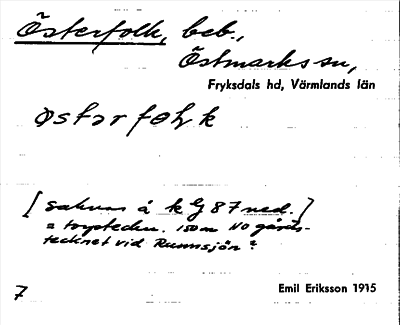 Österfolk, beb.,
Östmarks sn,
Fryksdals hd, Värmlands län
østərfoɫk
[saknas å k Bj 87 ned.]
= torptecken. 150 m NO gårds-
tecknet vid Runnsjön?
7
Emil Eriksson 1915